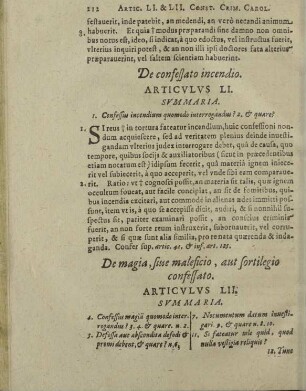 212 ARTIC. LI. & LII. CONST. CRIM. CAROL.
festauerit, inde patebit, an medendi, an verò necandi animum
8. habuerit. Et quia modus præparandi sine damno non omni-
bus notus est, ideo, si indicat, à quo edoctus, vel instructus fuerit,
vlterius inquiri potest, & an non illi ips doctores fata alterius
præparauerint, vel saltem scientiam habuerint.
De confessato incendio.
ARTICVLVS LI.
SVMMARIA.
1. Confessus incendium quomodo interrogandus? 2. & quare?
1. SI reus in tortura fateatur incendium, huic confessioni non-
dum acquiescere, sed ad veritatem plenius deinde interro-
gandam vlterius judex interrogare debet, quâ de causa, quo
tempore, quibus sociis & auxiliatoribus (sicut in præcedentibus
etiam notatum est) id ipsum fecerit, quâ materiâ ignem iniece-
rit vel subiecerit, à quo acceperit, vel vnde sibi eam comparaue-
2. rit. Ratio: vt cognosci possit, an materia sit talis, quæ ignem
occultum foueat, aut facile concipiat, an sit de fomitibus, quibus
incendia excitari, aut commode in alienas ædes immitti pos-
sunt, item vt is, à quo se accepisse dicit, audiri, & si nonnihil su-
spectus sit, pariter examinari possit, an conscius criminis
fuerit, an non forte reum instruxerit, subordinauerit, vel corru-
perit, & si quæ sunt alia similia, pro re nata quærenda & inda-
ganda. Confer sup. artic. 41. & inf. art. 125.
De magia, siue maleficio, aut sortilegio
confessato.
ARTICVLVS LII.
SVMMARIA.
1. Confessus magiâ quomodo inter-
rogandus? 3. 4. & quare. n. 2.
5. Defossa aut abscondita defodi &
promi debent, & quare? n. 6.
7. Nocumentum datum inuesti-
gari 9. & quare n. 8. 10.
11. Si fateatur tale quid, quod
nulla vestigia reliquit?
12. Tunc